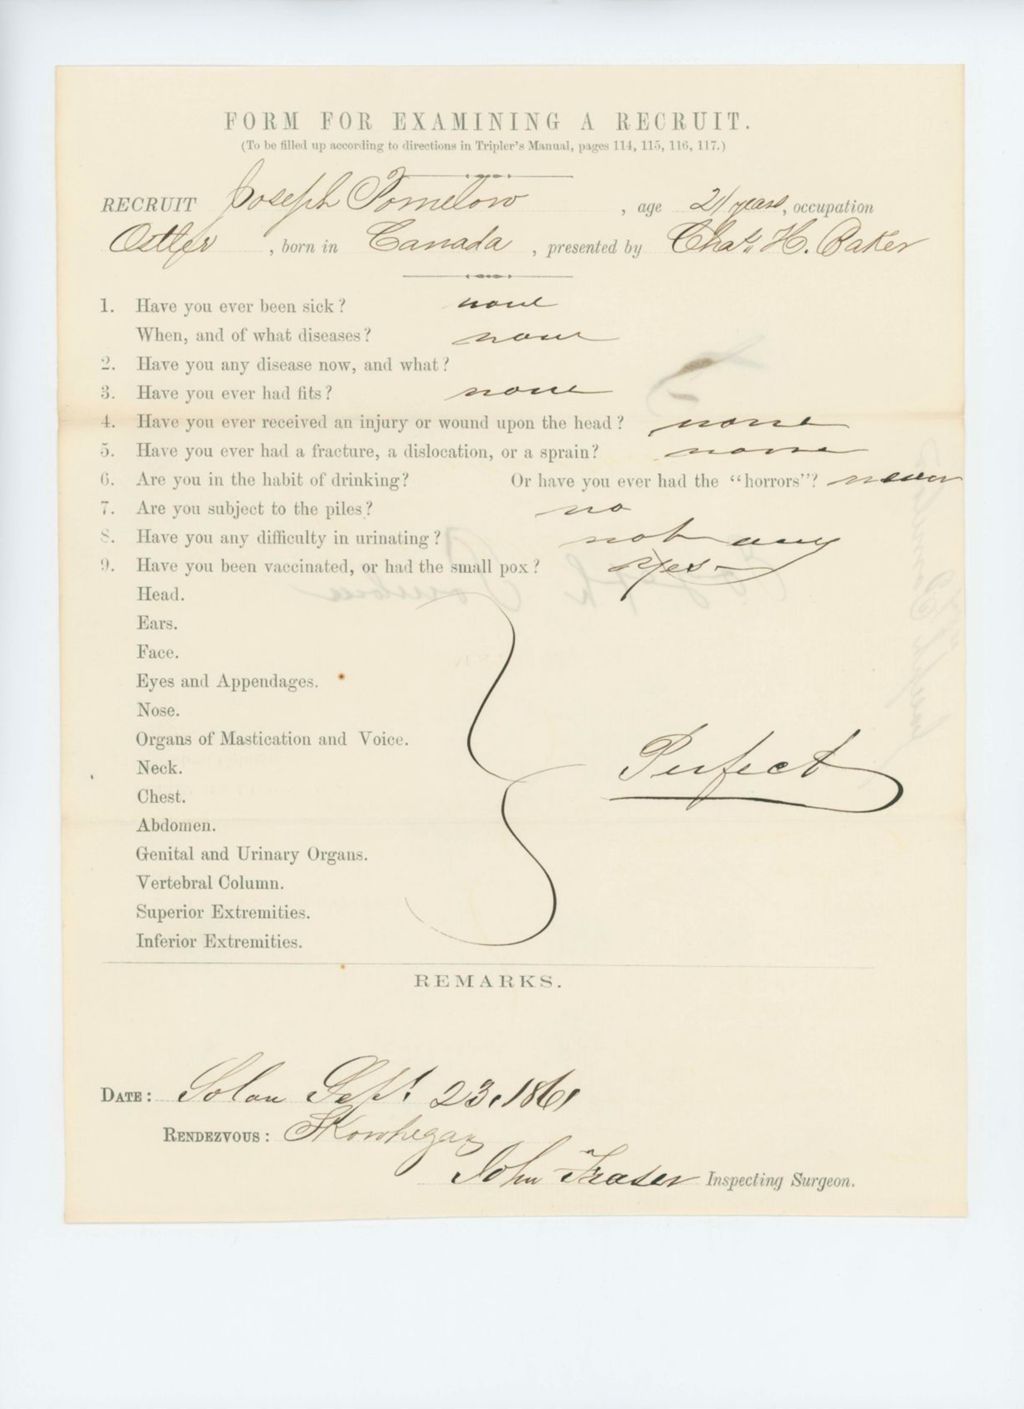 FORM FOR EXAMINING A RECRUIT.
(To be filled up according to directions in Tripler's Manual, pages 114, 115, 116, 117.)
RECRUIT Joseph Pomelow, age 21 years, occupation
Ostler, born in Canada, presented by Chas. H. Baker
1. Have you ever been sick? none
When, and of what diseases? none
2. Have you any disease now, and what?
3. Have you ever had fits? none
4. Have you ever received an injury or wound upon the head? none
5. Have you ever had a fracture, a dislocation, or a sprain? none
6. Are you in the habit of drinking? Or have you ever had the "horrors"? never
7. Are you subject to the piles? no
8. Have you any difficulty in urinating? not any
9. Have you been vaccinated, or had the small pox? Yes-
Head.
Ears.
Face.
Eyes and Appendages.
Nose.
Organs of Mastication and Voice.
Neck. Perfect
Chest.
Abdomen.
Genital and Urinary Organs.
Vertebral Column.
Superior Extremities.
Inferior Extremities.
REMARKS.
DATE: Solon Sept. 23, 1861
RENDEZVOUS: Skowhegan
John Fraser Inspecting Surgeon.